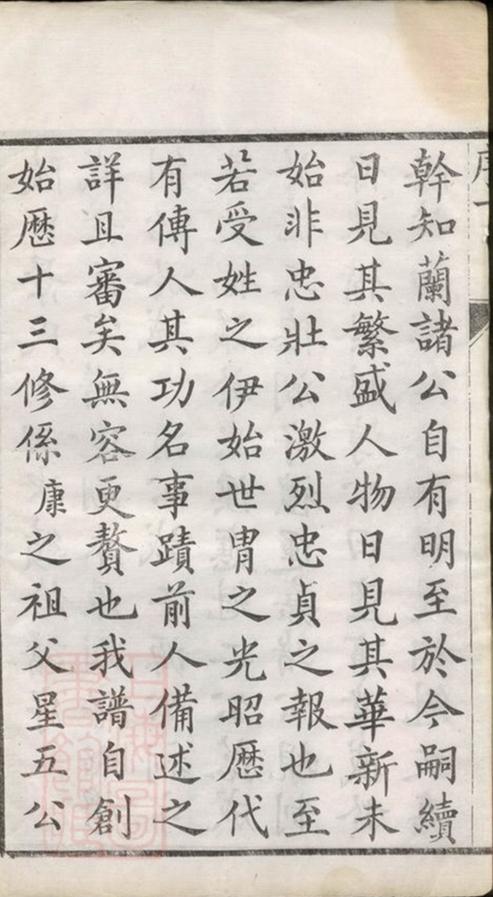 序
幹知蘭諸公自有明至於今嗣續
日見其繁盛人物日見其華新未
始非忠壯公激烈忠貞之報也至
若受姓之伊始世冑之光昭歷代
有傳人其功名事蹟前人備述之
詳且審矣無容更贅也我譜自創
始歷十三修係康之祖父星五公